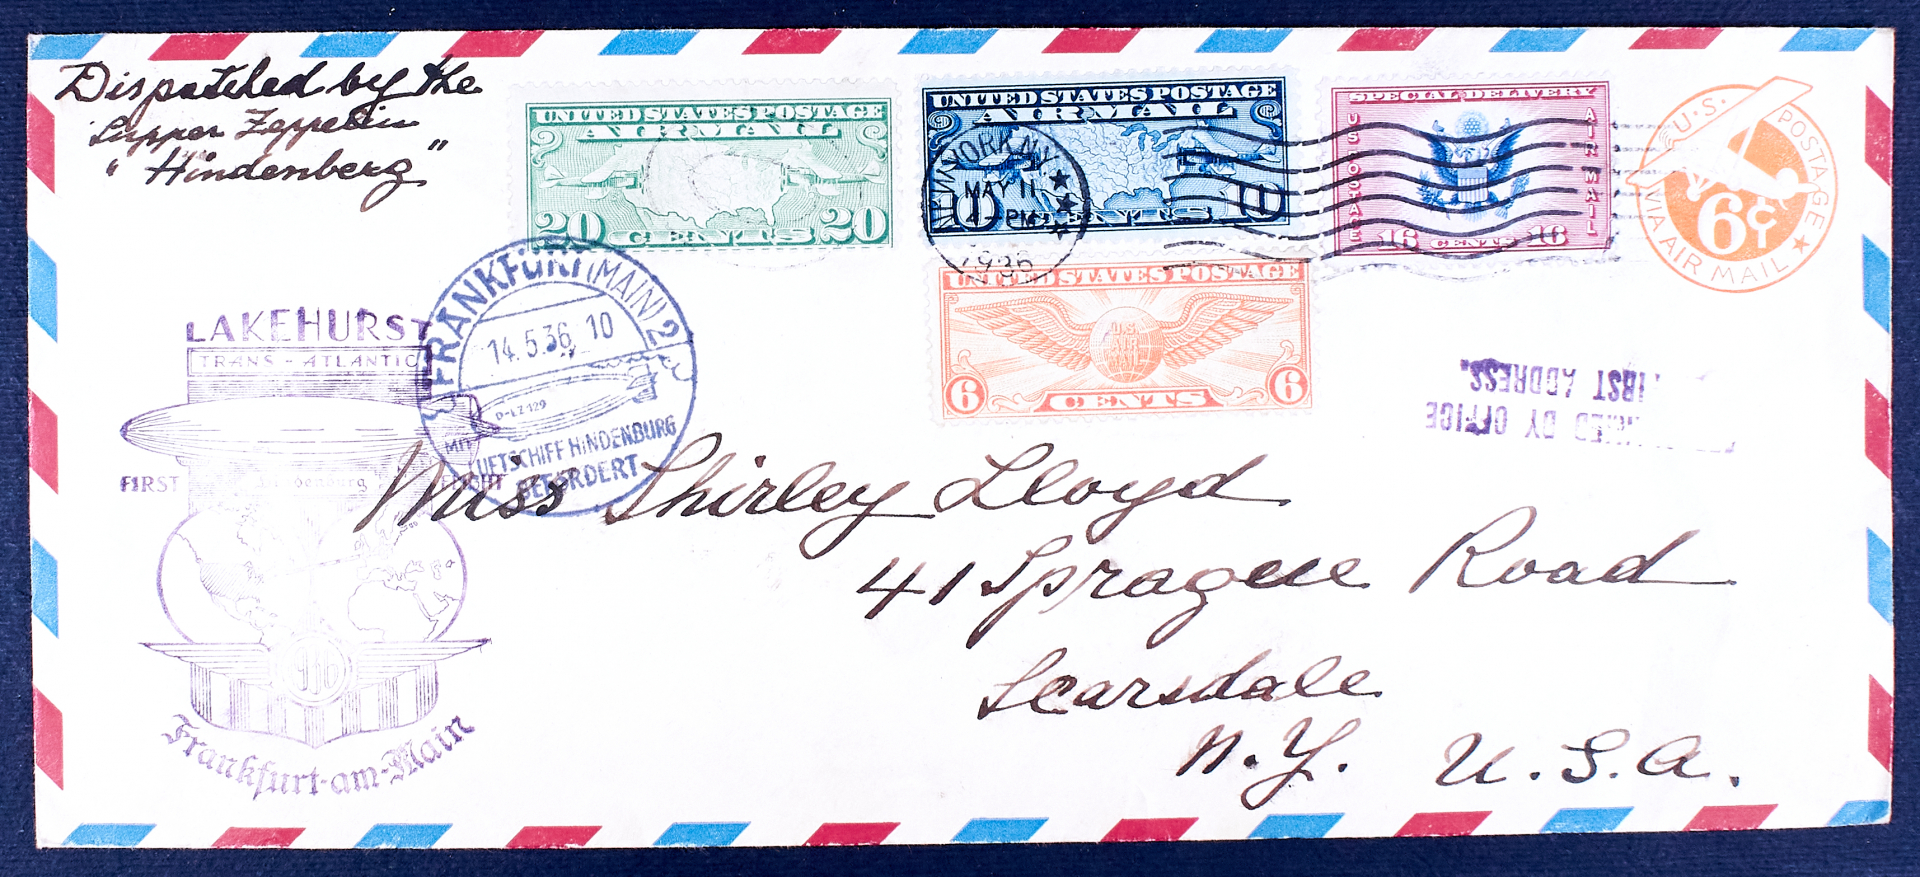 Dispatched by the
Supper Zeppelin
"Hindenberg"
UNITED STATES POSTAGE
AIR MAIL
20 CENTS 20
UNITED STATES POSTAGE
AIR MAIL
10 CENTS 10
NEW YORK N.Y.
MAY 11
4-PM
1936
SPECIAL DELIVERY
US POSTAGE
AIR MAIL
16 CENTS 16
U.S. POSTAGE
6¢
VIA AIR MAIL
UNITED STATES POSTAGE
U.S.
AIR
MAIL
6 CENTS 6
FRANKFURT (MAIN) 2
14.5.36. 10
D-LZ129
MIT
LUFTSCHIFF HINDENBURG
BEFÖRDERT
LAKEHURST
TRANS-ATLANTIC
FIRST Hindenburg FLIGHT
1936
Frankfurt-am-Main
BY OFFICE
FIRST ADDRESS.
Miss Shirley Lloyd
41 Sprague Road
Scarsdale
N.Y. U.S.A.